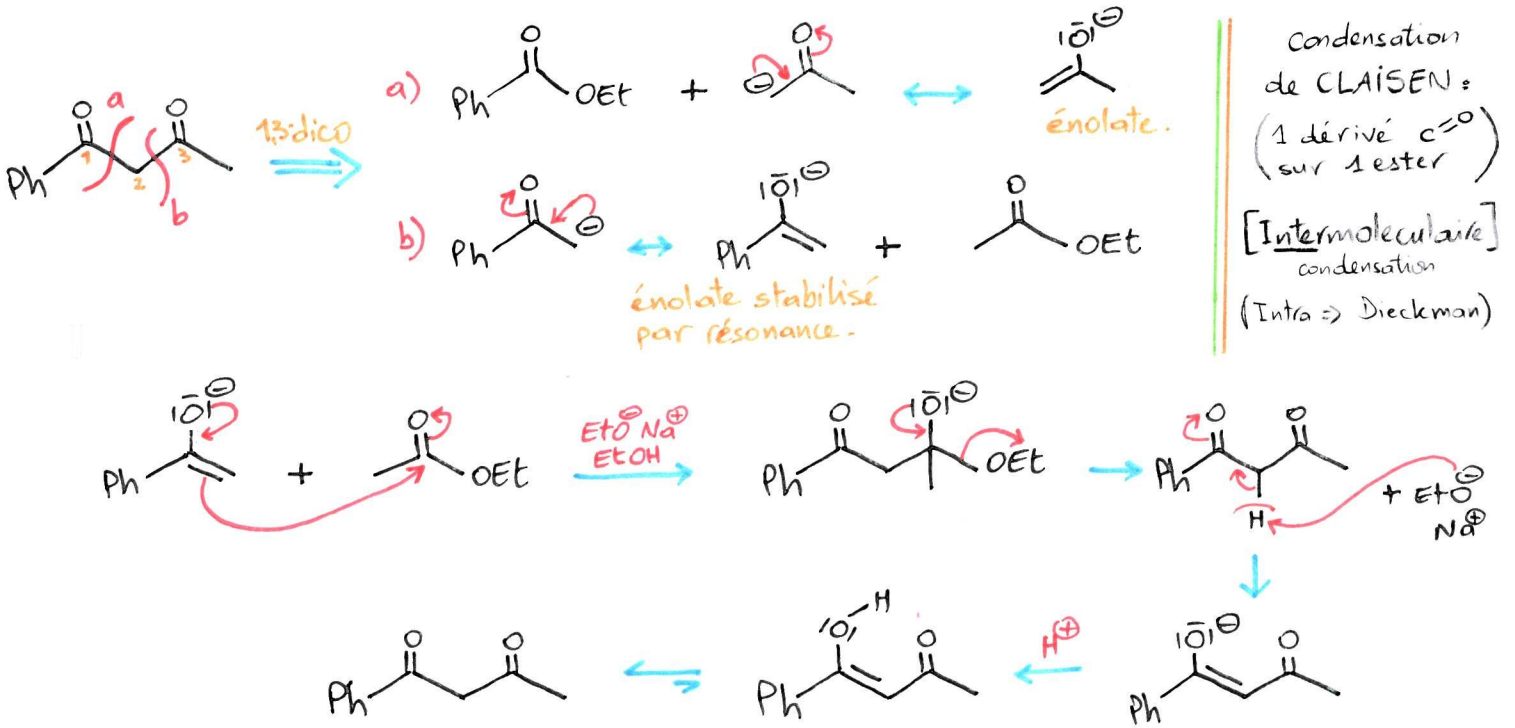 a)
O
Ph
OEt
+
O
⊖
|O̅|⊖
énolate.
O
O
a
1
2
3
b
Ph
1,3-dico
b)
O
Ph
⊖
|O̅|⊖
Ph
énolate stabilisé
par résonance.
+
O
OEt
Condensation
de CLAISEN :
(1 dérivé C=O
sur 1 ester)
[Intermoleculaire]
condensation
(Intra => Dieckman)
|O̅|⊖
Ph
+
O
OEt
EtO⊖ Na⊕
EtOH
O
|O̅|⊖
Ph
OEt
O
O
Ph
H
+ EtO⊖
Na⊕
|O̅|⊖
O
Ph
H⊕
|O̅|
H
O
Ph
O
O
Ph